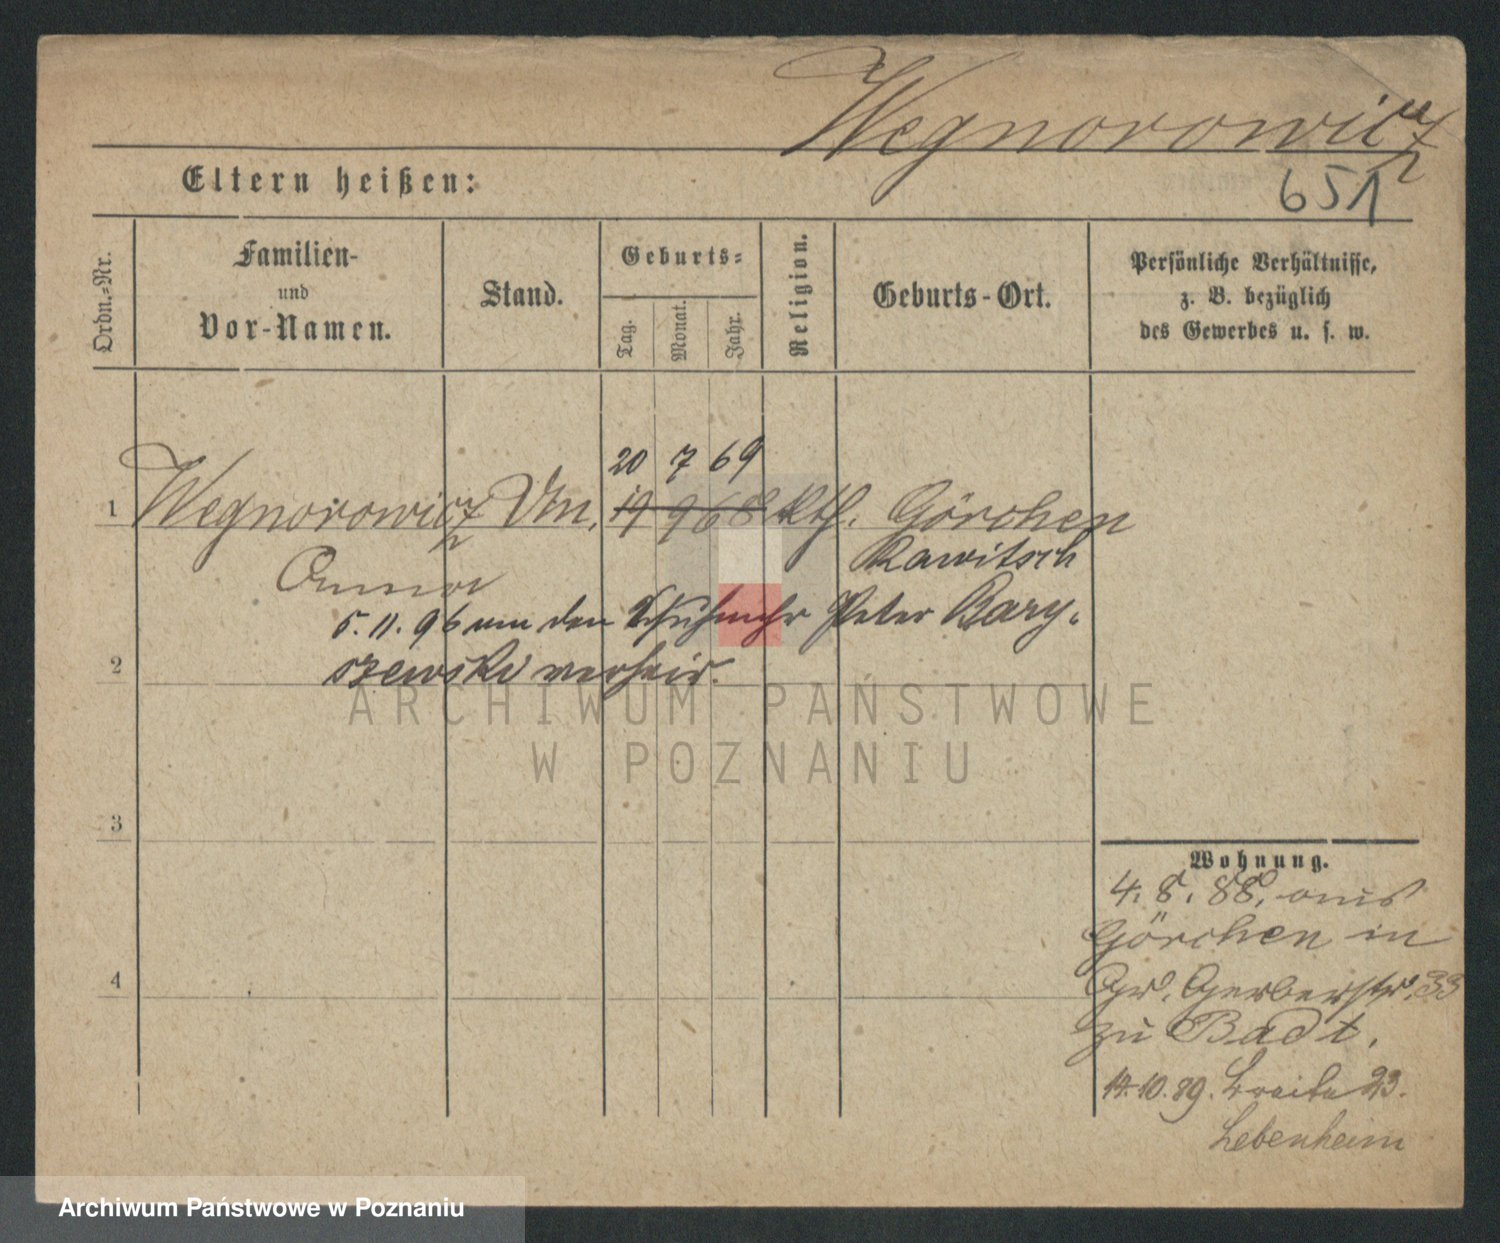 Wegnorowicz
651
Eltern heißen:
Ordn.-Nr.
Familien-
und
Vor-Namen.
Stand.
Geburts-
Tag.
Monat.
Jahr.
Religion.
Geburts-Ort.
Persönliche Verhältnisse,
z. B. bezüglich
des Gewerbes u. s. w.
20 7 69
1 Wegnorowicz 19 9 68 Kth. Görchen
Rawitsch
Anna
5.11.96 mit den Schuhmchr Peter Bary-
2 szewski verheir.
ARCHIWUM PAŃSTWOWE
W POZNANIU
3
Wohnung.
4. 8. 88. aus
Görchen in
4 Gr. Gerberstr. 33
zu Badt.
14.10.89. Breite 23.
Lebenheim
Archiwum Państwowe w Poznaniu